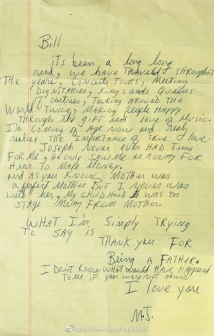 Bill
its been a long long
road, we have traveled throughout
The years, Concerts, Tours, Meeting
Dignitaries, Kings and Queens
of countries, Touring around the
World Twice, Making people Happy
Through the gift and love of Music.
I'm coming of age now and realy
realize the importance of true love
Joseph Never ever had Time
For me, He only saw me as a way For
Him to Make Money.
And as you know Mother was
a perfect Mother But I Never was
with her, My child Hood was on
stage Away From Mother.
WHAT I'm Simply Trying
To SAY is
THANK you FOR
Being A FATHER.
I DON'T KNOW what would HAVE HAPPENED
To me if you were Not around
I love you
M.J.